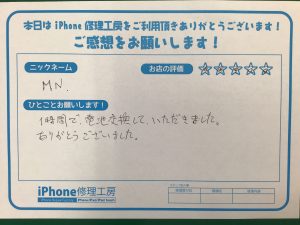 本日は iPhone 修理工房をご利用頂きありがとうございます!
ご感想をお願いします!
ニックネーム
お店の評価
MN.
ひとことお願いします!
1時間で、電池交換して、いただきました。
ありがとうございました。
iPhone修理工房